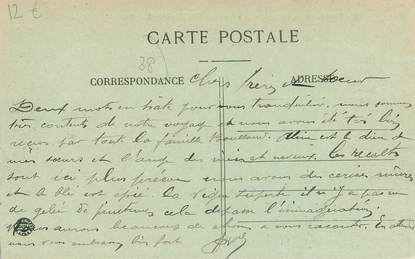 12 €
38
CARTE POSTALE
CORRESPONDANCE
ADRESSE
Chers frère et soeur
Deux mots en hâte pour vous tranquiliser, nous sommes
très contents de notre voyage et nous avons été très bien
reçus par toute la famille est le dieu de
mes soeurs et l'ange des et neveux. les récoltes
sont ici plus précoces nous avons des cerises mûres
et le blé est épié la vigne superbe il n'y a pas eu
de gelée de printemps cela dépasse l'imagination
nous aurons beaucoup de choses a vous raconter. En
nous vous embrassons bien fort